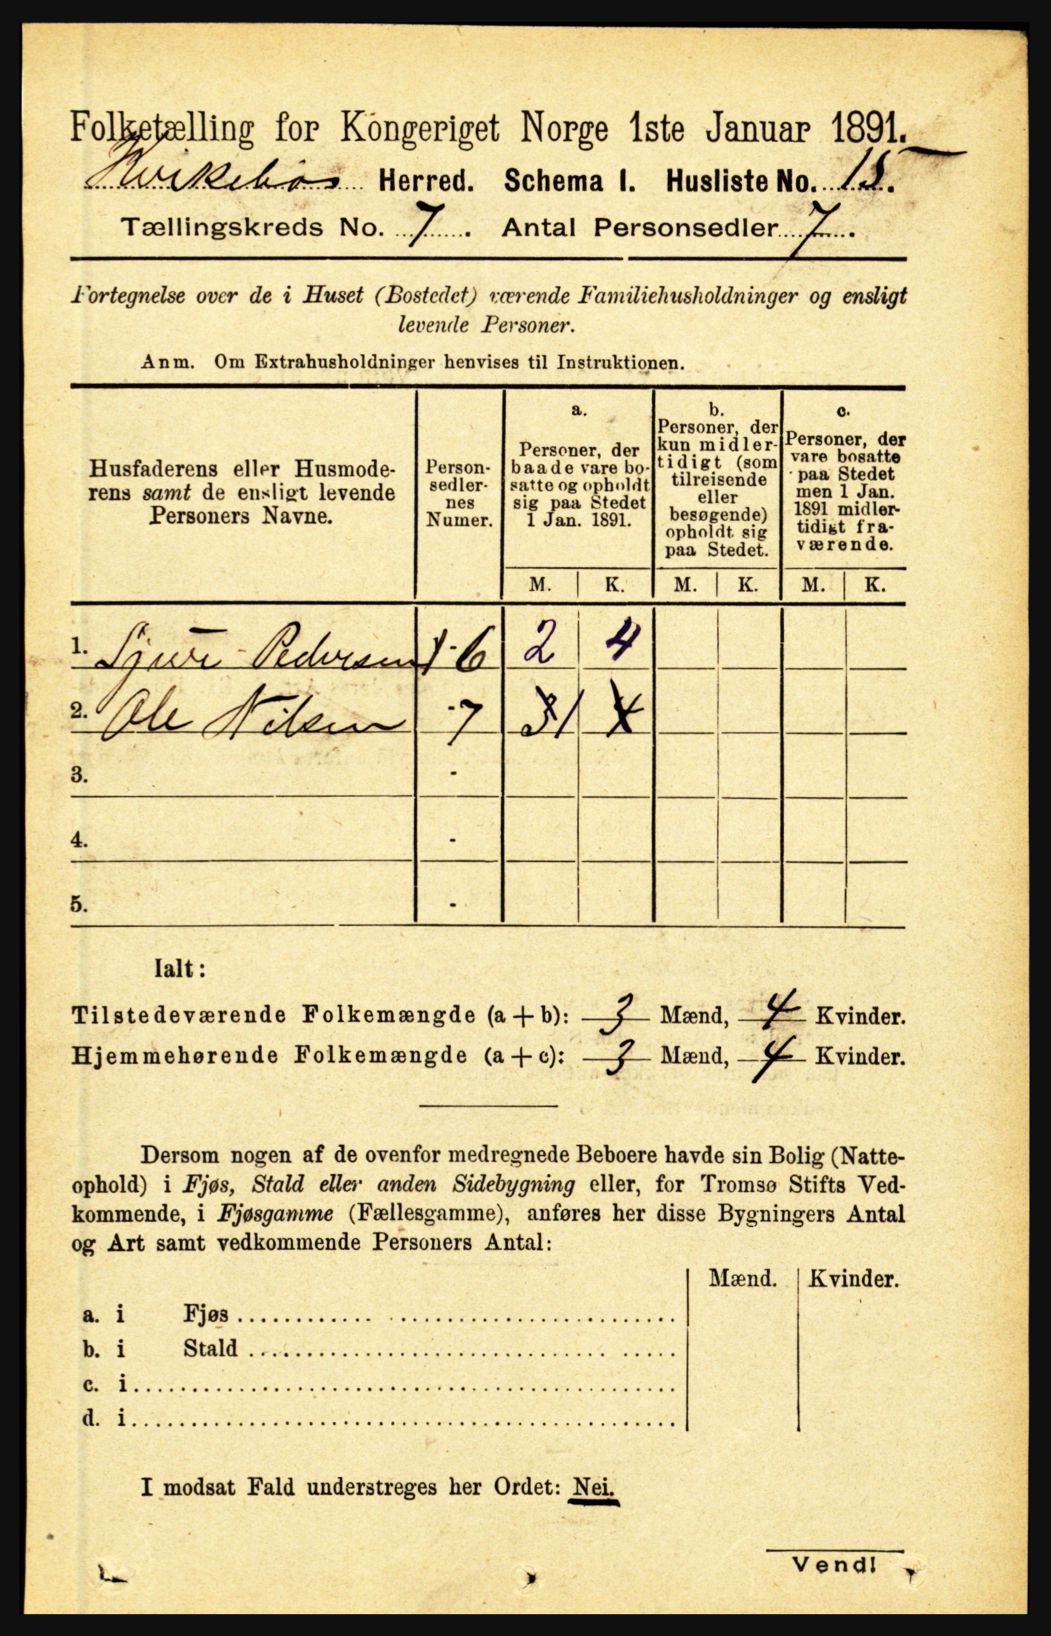 Folketælling for Kongeriget Norge 1ste Januar 1891.
Kirkebøs Herred. Schema I. Husliste No. 15.
Tællingskreds No. 7. Antal Personsedler 7.
Fortegnelse over de i Huset (Bostedet) værende Familiehusholdninger og ensligt
levende Personer.
Anm. Om Extrahusholdninger henvises til Instruktionen.
Husfaderens eller Husmode-
rens samt de ensligt levende
Personers Navne.
Person-
sedler-
nes
Numer.
a.
Personer, der
baade vare bo-
satte og opholdt
sig paa Stedet
1 Jan. 1891.
b.
Personer, der
kun midler-
tidigt (som
tilreisende
eller
besøgende)
opholdt sig
paa Stedet.
c.
Personer, der
vare bosatte
paa Stedet
men 1 Jan.
1891 midler-
tidigt fra-
værende.
M. K. M. K. M. K.
1. Sjur Pedersen 1-6 2 4
2. Ole Nilsen -7 3 1 4
3. -
4. -
5. -
Ialt:
Tilstedeværende Folkemængde (a + b): 3 Mænd, 4 Kvinder.
Hjemmehørende Folkemængde (a + c): 3 Mænd, 4 Kvinder.
Dersom nogen af de ovenfor medregnede Beboere havde sin Bolig (Natte-
ophold) i Fjøs, Stald eller anden Sidebygning eller, for Tromsø Stifts Ved-
kommende, i Fjøsgamme (Fællesgamme), anføres her disse Bygningers Antal
og Art samt vedkommende Personers Antal:
Mænd. Kvinder.
a. i Fjøs
b. i Stald
c. i
d. i
I modsat Fald understreges her Ordet: Nei.
Vend!